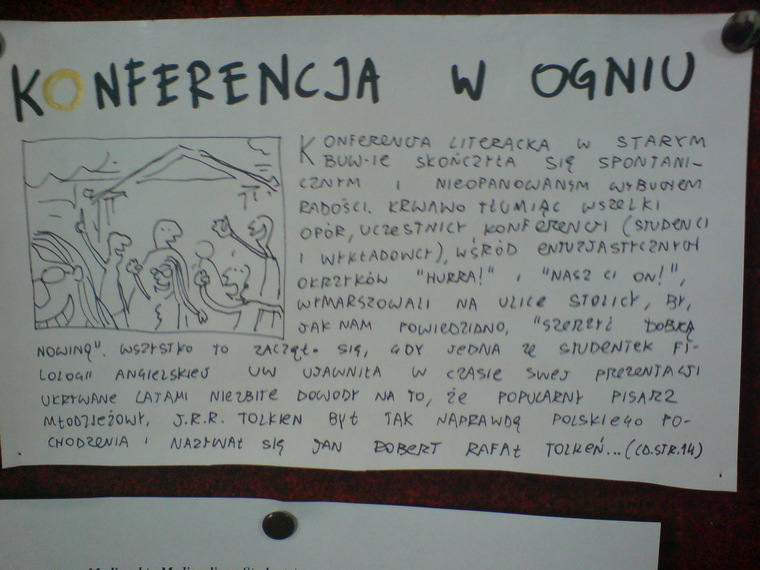 KONFERENCJA W OGNIU
KONFERENCJA LITERACKA W STARYM
BUW-IE SKOŃCZYŁA SIĘ SPONTANI-
CZNYM I NIEOPANOWANYM WYBUCHEM
RADOŚCI. KRWAWO TŁUMIĄC WSZELKI
OPÓR, UCZESTNICY KONFERENCJI (STUDENCI
I WYKŁADOWCY), WŚRÓD ENTUZJASTYCZNYCH
OKRZYKÓW "HURRA!" I "NASZ CI ON!",
WYMARSZOWALI NA ULICE STOLICY, BY,
JAK NAM POWIEDZIANO, "SZERZYĆ DOBRĄ
NOWINĘ". WSZYSTKO TO ZACZĘŁO SIĘ, GDY JEDNA ZE STUDENTEK FI-
LOLOGII ANGIELSKIEJ UW UJAWNIŁA W CZASIE SWEJ PREZENTACJI
UKRYWANE LATAMI NIEZBITE DOWODY NA TO, ŻE POPULARNY PISARZ
MŁODZIEŻOWY, J.R.R. TOLKIEN BYŁ TAK NAPRAWDĘ POLSKIEGO PO-
CHODZENIA I NAZYWAŁ SIĘ JAN ROBERT RAFAŁ TOLKEŃ... (CD.STR.14)